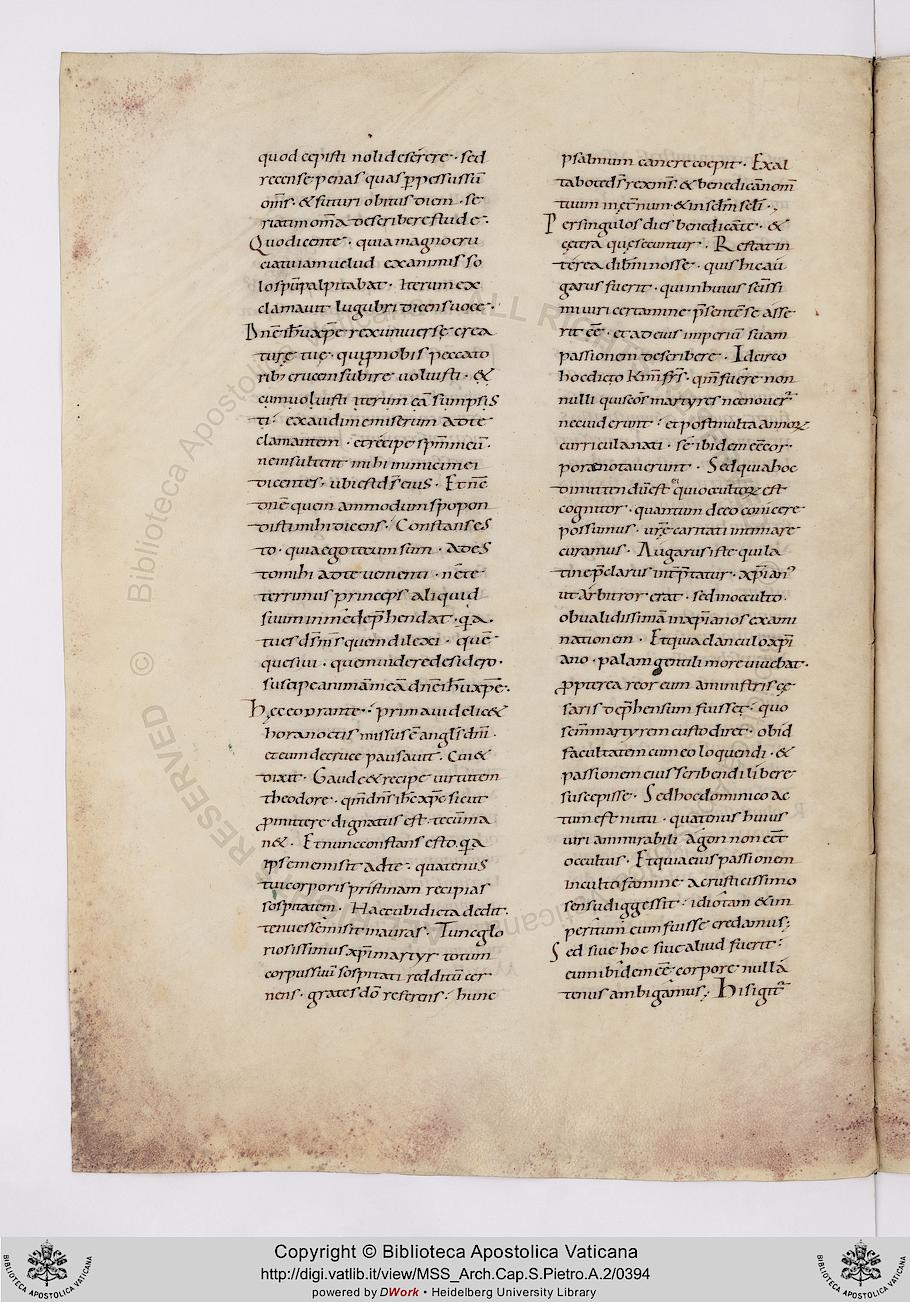 quod cepisti noli deserere · sed
recense penas quas ꝑpessus sū
om̄s · & futuri obitus diem · se
riatim om̄a describere stude ·
Quo dicente · quia magno cru
ciatu iam uelud exanimis so
lo spū palpitabat · Iterum ex
clamauit lugubri dicens uoce ·
Dn̄e ih̄u xp̄e rex uniuersę crea
turę tuę · qui p nobis peccato
rib; crucem subire uoluisti · &
cum uoluisti iterum eā sumpsis
ti · exaudi me miserum ad te
clamantem · et recipe spm̄ meū ·
ne insultent mihi inimici mei
dicentes · ubi est ds̄ eius · Et nē
dn̄e quem ammodum spopon
disti mihi dicens · Constans es
to · quia ego tecum sum · ades
to mihi ad te uenienti · ne te
terrimus princeps aliquid
suum in me dep̄hendat · q̄a
tu es ds̄ m̄s quem dilexi · quē
quesiui · quem uidere desidero ·
suscipe animā meā dn̄e ih̄u xp̄e ·
Hęc eo orante · prima uidelic&
hora noctis missus ē angl̄s dn̄i ·
et eum de cruce pausauit · Cui &
dixit · Gaude & recipe uirtutem
theodore · qm̄ dn̄s ih̄c xp̄c sicut
ꝓmittere dignatus est · tecum ma
n& · Et nunc constans esto · q̄a
ipse me misit ad te · quatenus
tui corporis pristinam recipias
sospitatem · Hac ubi dicta dedit ·
tenues se misit in auras · Tunc glo
riosissimus xp̄i martyr totum
corpus suū sospitati redditū cer
nens · grates dō referens · hunc
psalmum canere coepit · Exal
tabo te ds̄ rex m̄s · & benedicā nom̄
tuum in ęt̄num & in sclm̄ scl̄i ·
Per singulos dies benedicā te · &
cętera quę secuntur · Restat in
terea dilm̄i nosse · quis hic au
garus fuerit · qui in huius scissi
mi uiri certamine p̄sentē se asse
rit eē · et ad eius imperiū suam
passionem describere · Idcirco
hoc dicto km̄i frs̄ · qm̄ fuere non
nulli qui scōs martyres nec nouer̄
nec uiderunt · et post multa annoꝝ
curricula nati · se ibidem eē cor
pore notauerunt · Sed quia hoc
dimittendū est ei qui occultoꝝ est
cognitor · quantum dō eo conicere
possumus · ur̄ę caritati intimare
curamus · Augarus iste qui la
tine p̄clarus int̄p̄tatur · xp̄ian;
ut arbitror erat · sed in occulto ·
ob ualidissimā in xp̄ianos exami
nationem · Et quia clanculo xp̄i
ano · palam gentili more uiuebat ·
ꝓpterea reor eum a ministris cę
saris dep̄hensum fuisset · quo
scm̄ martyrem custodiret · ob id
facultatem cum eo loquendi · &
passionem eius scribendi libere
suscepisse · Sed hoc dominico ac
tum est nutu · quatenus huius
uiri ammirabili agon non eēt
occultus · Et quia eius passionem
inculto famine ac rusticissimo
sensu diggessit · idiotam & im
peritum eum fuisse credamus ;
Sed siue hoc siue aliud fuerit ·
eum ibidem eē corpore nulla
tenus ambigamus ; His igit̄
© Biblioteca Apostolica Vaticana ALL RIGHTS RESERVED
Copyright © Biblioteca Apostolica Vaticana
http://digi.vatlib.it/view/MSS_Arch.Cap.S.Pietro.A.2/0394
powered by DWork · Heidelberg University Library
BIBLIOTECA APOSTOLICA VATICANA
BIBLIOTECA APOSTOLICA VATICANA